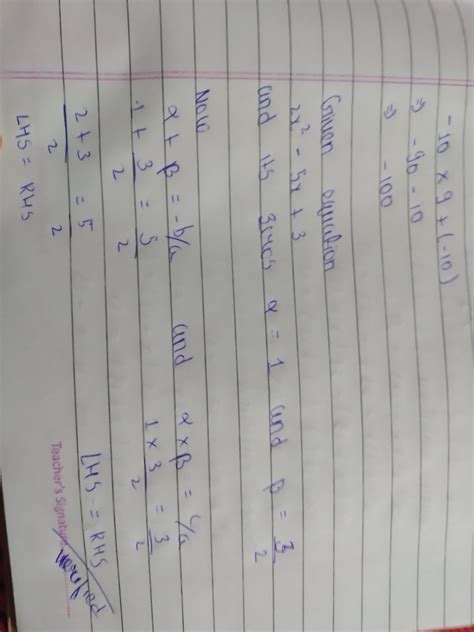 -10 × 9 + (-10)
⇒ -90 - 10
⇒ -100
Given equation
2x² - 5x + 3
and its zeroes α = 1 and β = 3/2
Now
α + β = -b/a and α × β = c/a
1 + 3/2 = 5/2 1 × 3/2 = 3/2
2 + 3/2 = 5/2 LHS = RHS
LHS = RHS
Teacher's Signature